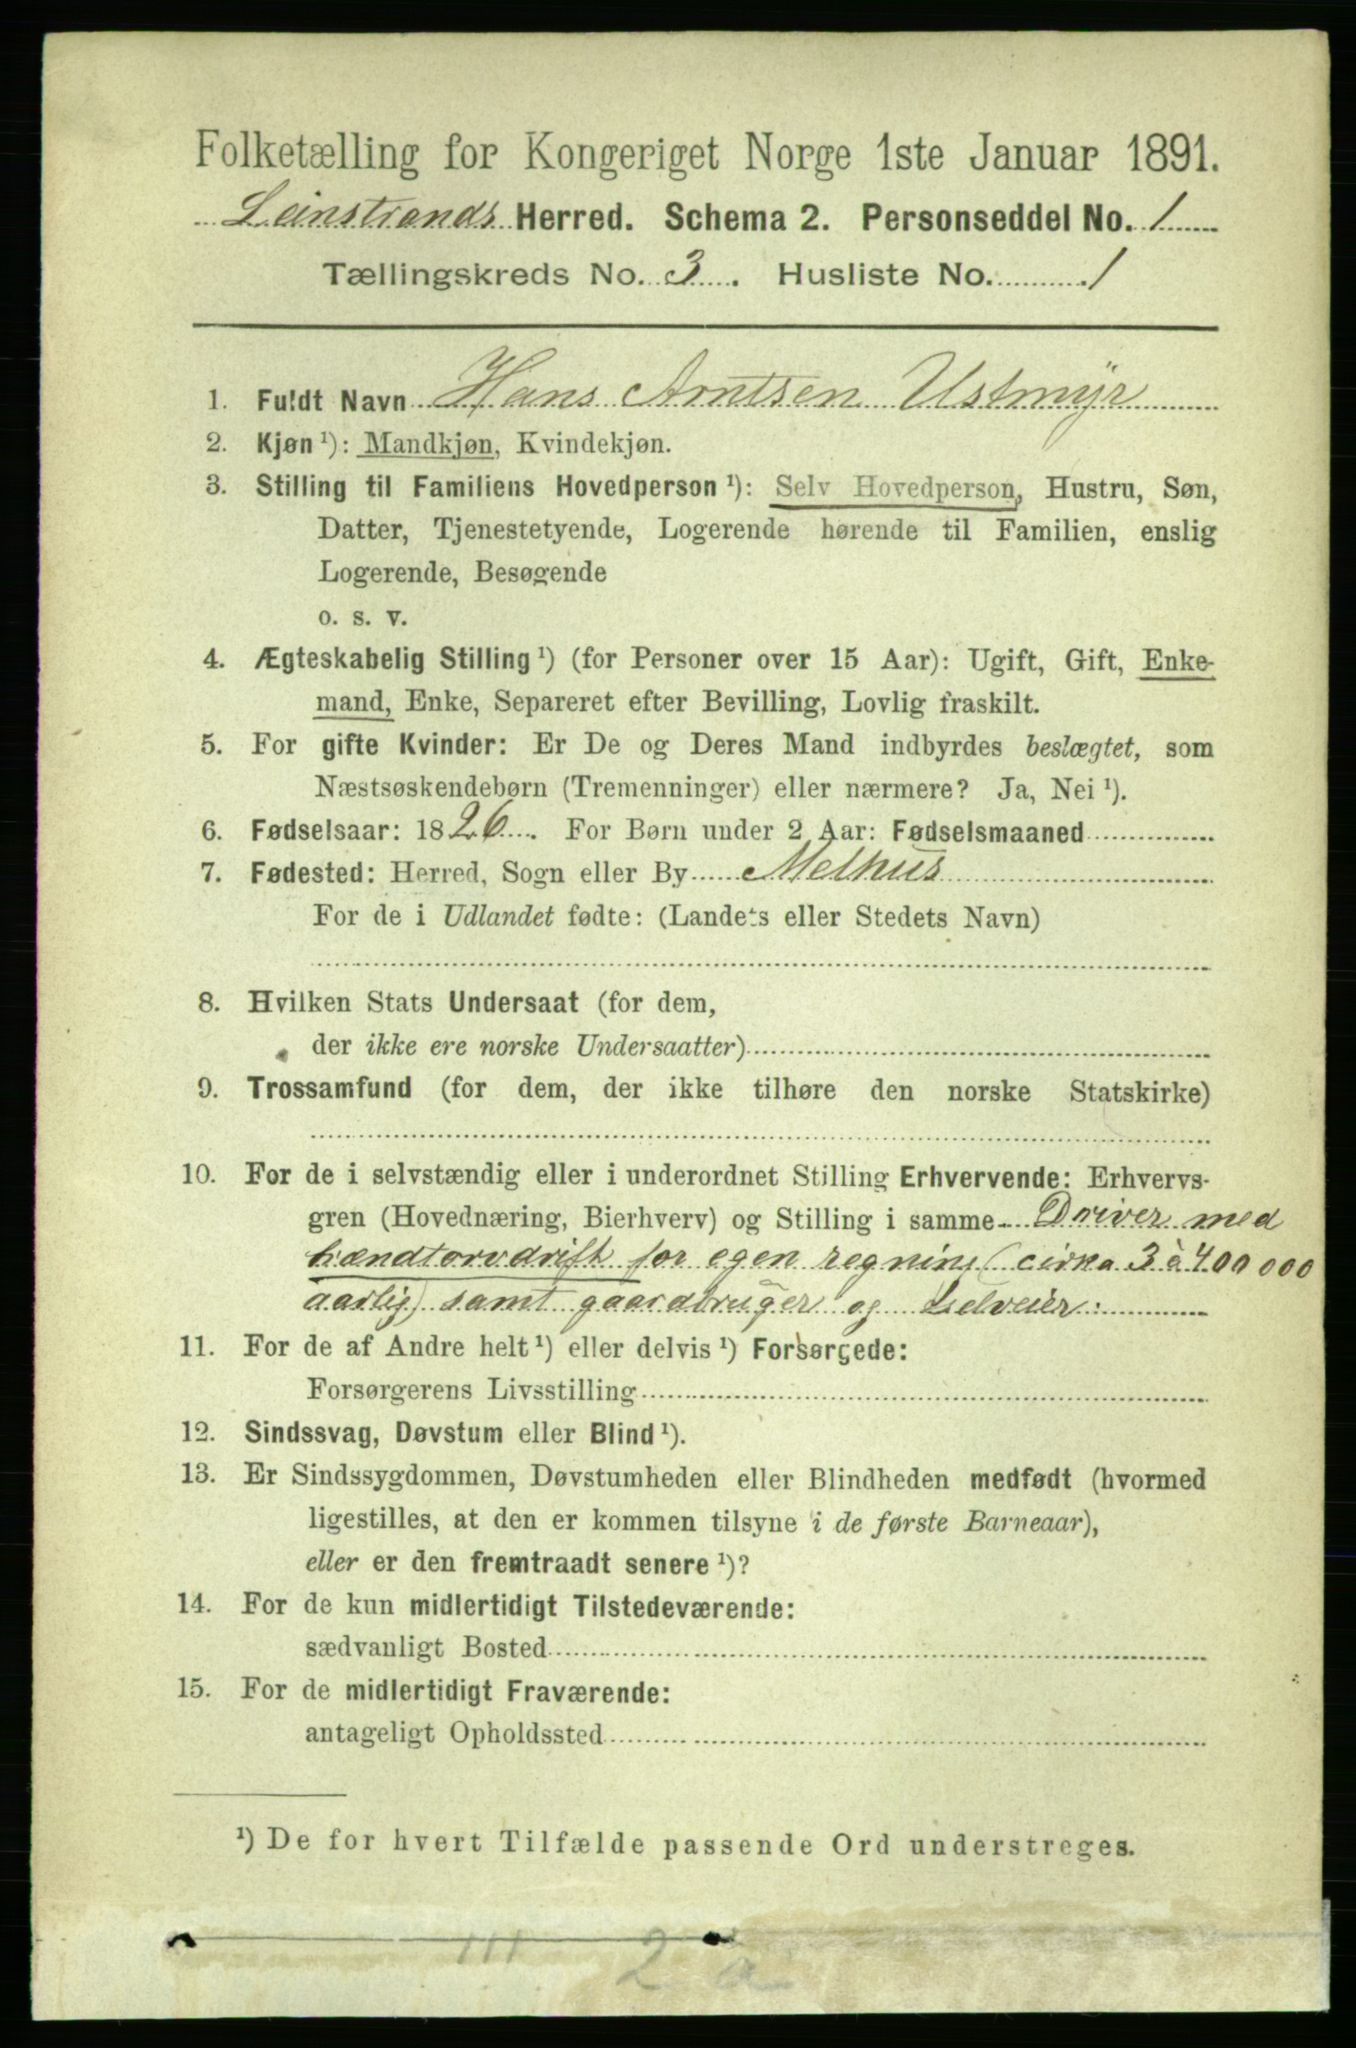 Folketælling for Kongeriget Norge 1ste Januar 1891.
Leinstrands Herred. Schema 2. Personseddel No. 1
Tællingskreds No. 3. Husliste No. 1
1. Fuldt Navn Hans Arntsen Ustmyr
2. Kjøn ¹): Mandkjøn, Kvindekjøn.
3. Stilling til Familiens Hovedperson ¹): Selv Hovedperson, Hustru, Søn,
Datter, Tjenestetyende, Logerende hørende til Familien, enslig
Logerende, Besøgende
o. s. v.
4. Ægteskabelig Stilling ¹) (for Personer over 15 Aar): Ugift, Gift, Enke-
mand, Enke, Separeret efter Bevilling, Lovlig fraskilt.
5. For gifte Kvinder: Er De og Deres Mand indbyrdes beslægtet, som
Næstsøskendebørn (Tremenninger) eller nærmere? Ja, Nei ¹).
6. Fødselsaar: 1826. For Børn under 2 Aar: Fødselsmaaned
7. Fødested: Herred, Sogn eller By Melhus
For de i Udlandet fødte: (Landets eller Stedets Navn)
8. Hvilken Stats Undersaat (for dem,
der ikke ere norske Undersaatter)
9. Trossamfund (for dem, der ikke tilhøre den norske Statskirke)
10. For de i selvstændig eller i underordnet Stilling Erhvervende: Erhvervs-
gren (Hovednæring, Bierhverv) og Stilling i samme Driver med
brændtorvdrift for egen regning (cirka 3 à 400 000
aarlig) samt gaardbruger og Selveier.
11. For de af Andre helt ¹) eller delvis ¹) Forsørgede:
Forsørgerens Livsstilling
12. Sindssvag, Døvstum eller Blind ¹).
13. Er Sindssygdommen, Døvstumheden eller Blindheden medfødt (hvormed
ligestilles, at den er kommen tilsyne i de første Barneaar),
eller er den fremtraadt senere ¹)?
14. For de kun midlertidigt Tilstedeværende:
sædvanligt Bosted
15. For de midlertidigt Fraværende:
antageligt Opholdssted
¹) De for hvert Tilfælde passende Ord understreges.
III 2 a